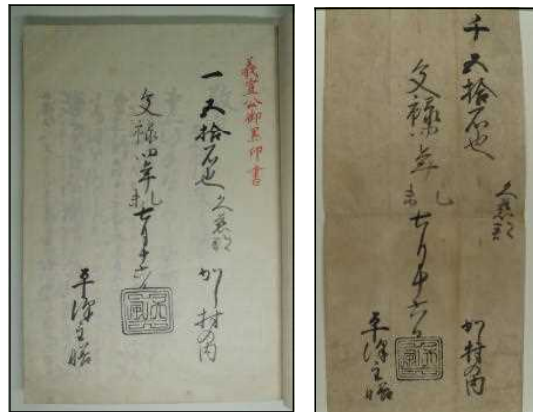 義宣公御黒印書
一 五拾石也 久慈郡 かし村の内
文禄四年 乙未 七月十六日
平澤主膳
千 五拾石也 久慈郡 かし村の内
文禄四年 乙未 七月十六日
平澤主膳